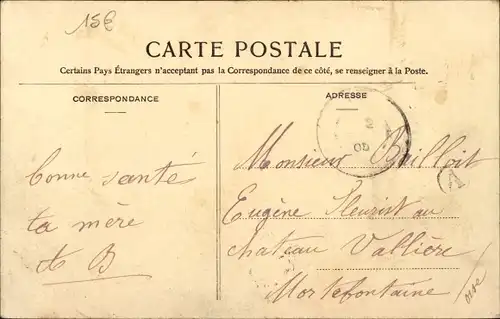 15€
CARTE POSTALE
Certains Pays Étrangers n'acceptant pas la Correspondance de ce côté, se renseigner à la Poste.
CORRESPONDANCE
bonne santé
ta mère
A B
ADRESSE
Monsieur Bailloit
Eugène fleurist au
chateau Vallière
Mortefontaine
oise